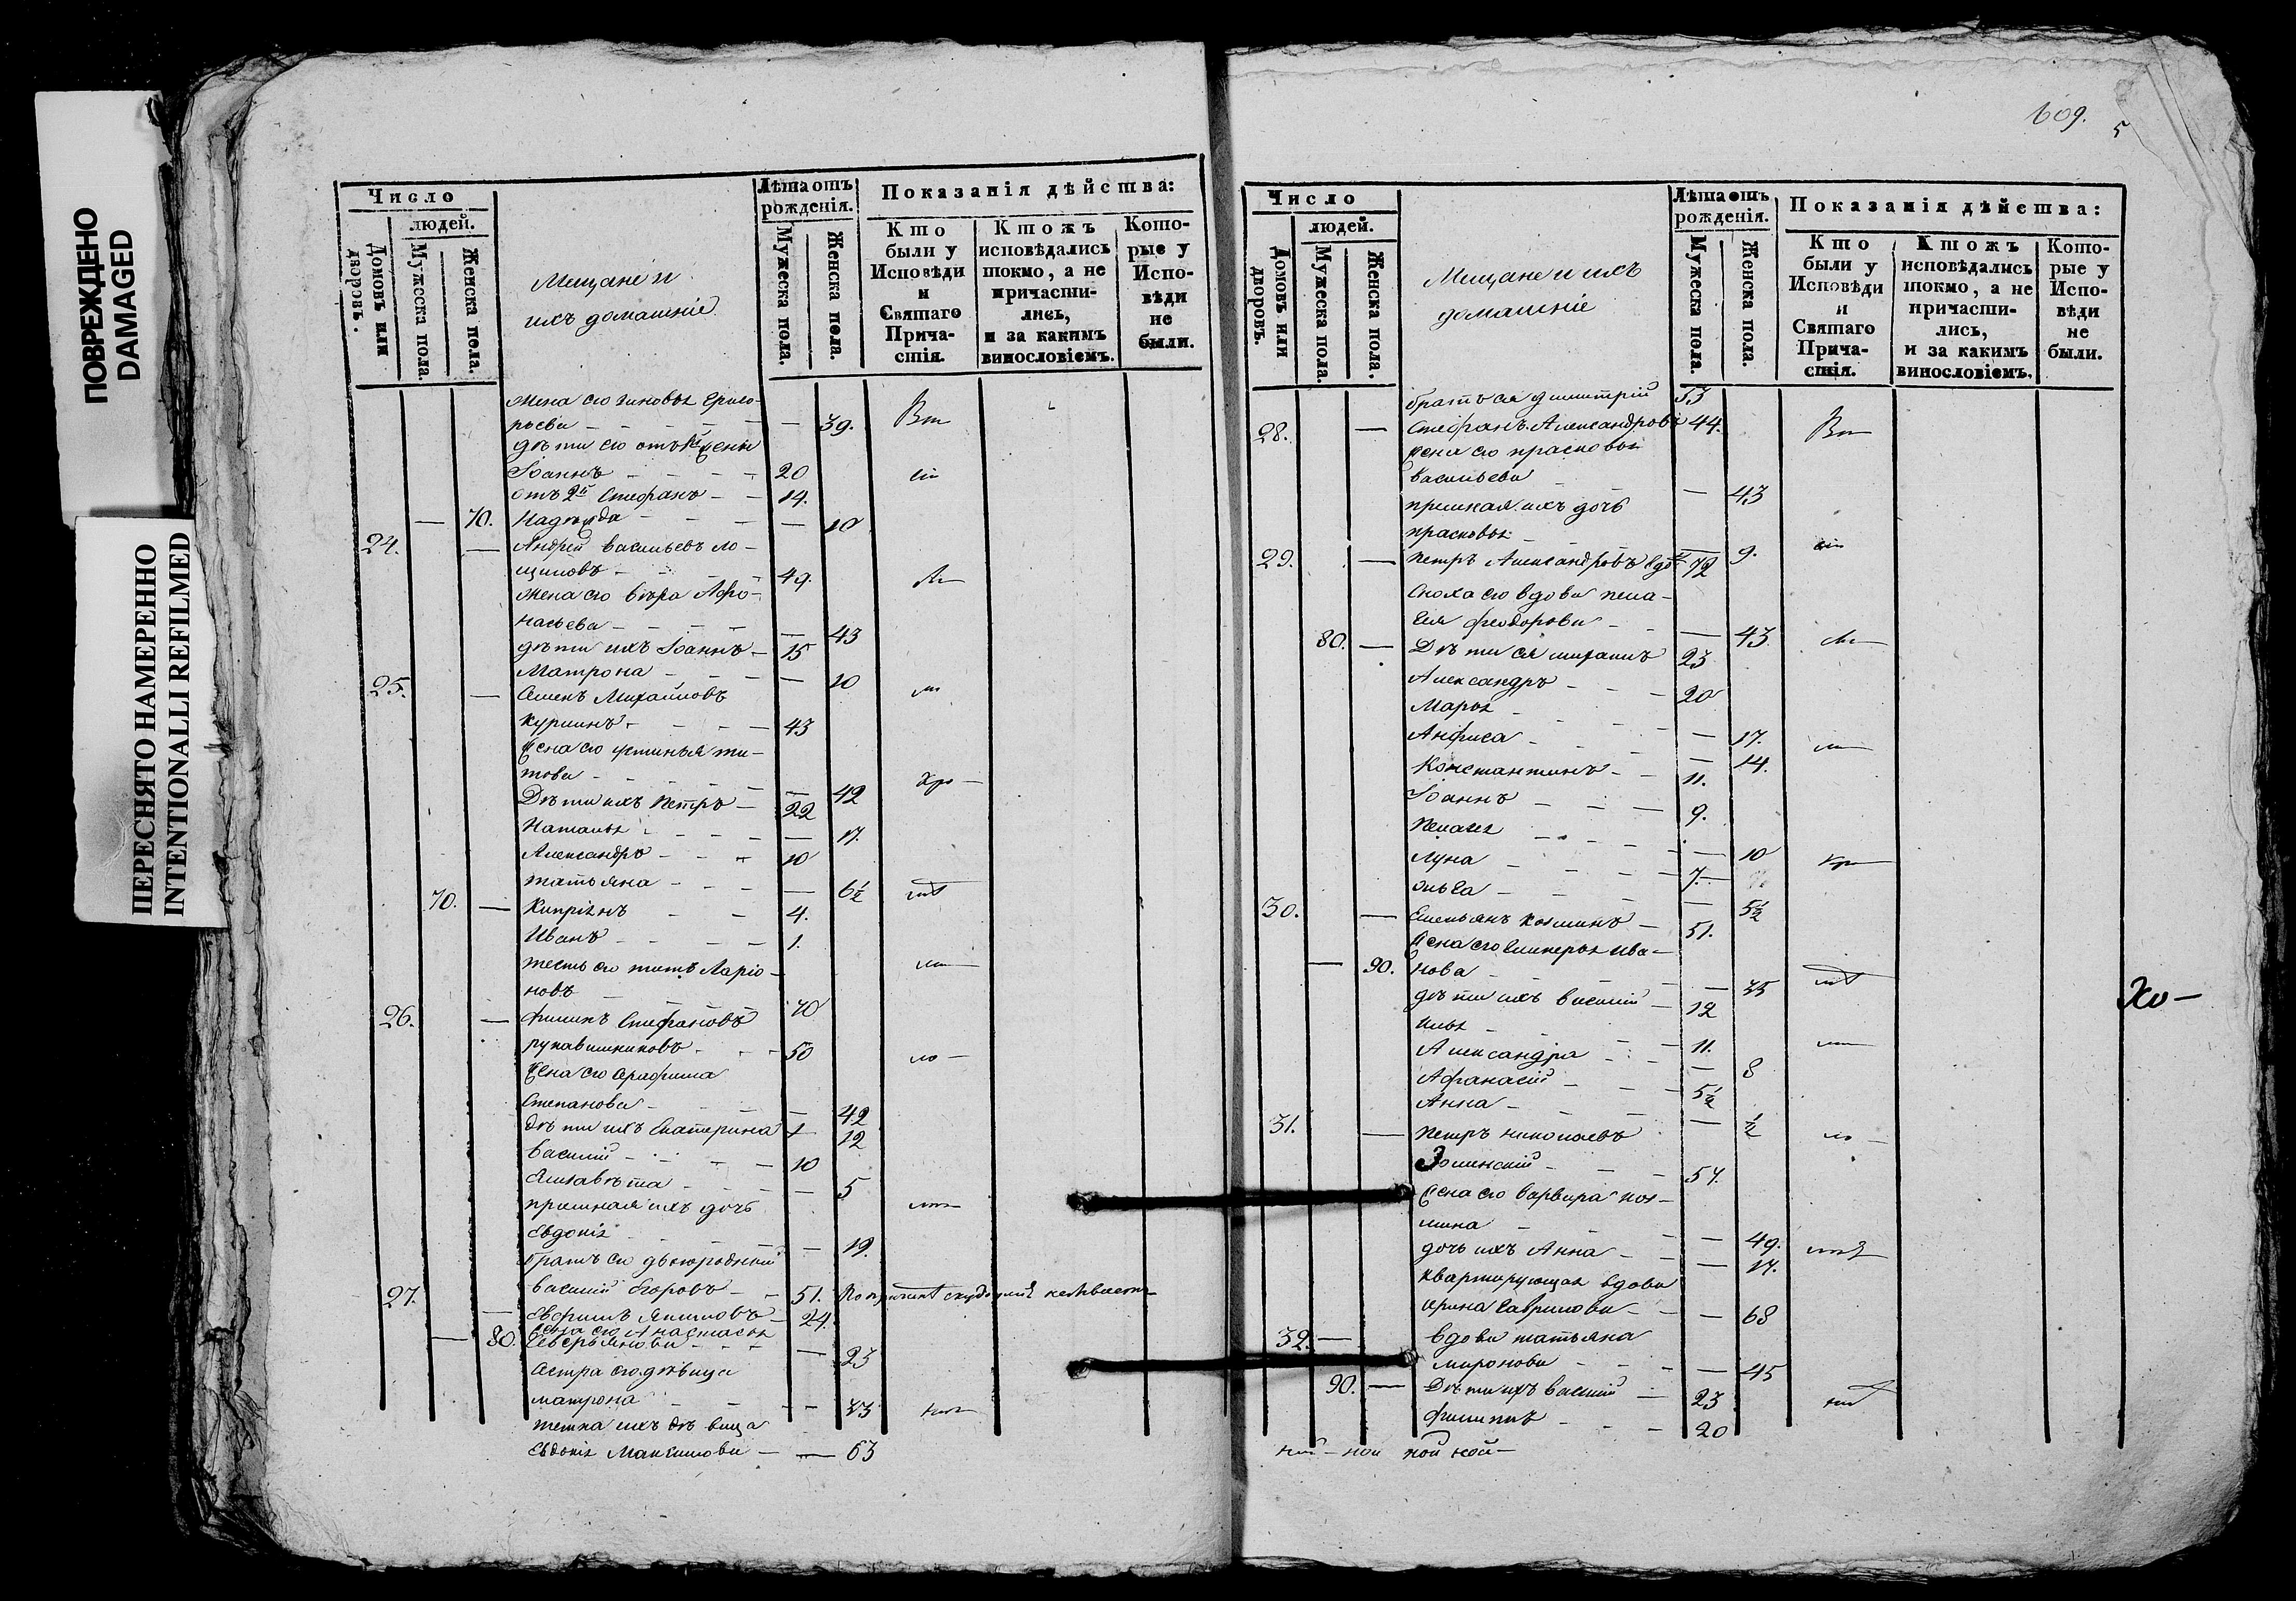 ПОВРЕЖДЕНО
DAMAGED
ПЕРЕСНЯТО НАМЕРЕННО
INTENTIONALLI REFILMED
Число
людей.
Домовъ или дворовъ.
Мужеска пола.
Женска пола.
Мещане и
ихъ домашніе
Лѣта отъ рожденія.
Мужеска пола.
Женска пола.
Показанія дѣйства:
Кто были у Исповѣди и Святаго Прича-стія.
Ктожъ исповѣдались токмо, а не причасти-лись, и за какимъ винословіемъ.
Кото-рые у Испо-вѣди не были.
Жена его Зиновья Григо-
рьева — 39.
дѣти его отъ 1й жены
Іоаннъ 20
отъ 2й Стефанъ 14.
— 70. Надежда — 10
24. — Андрей Васильевъ Ло-
щиловъ 49.
Жена его Вѣра Афо-
насьева — 43
дѣти ихъ Іоаннъ 15
Матрона — 10
25. — Семенъ Михайловъ
43
Жена его Устинья Ти-
това — 42
Дѣти ихъ Петръ 22
Наталья — 17.
Александръ 10
Татьяна — 6½
70. — Кипріянъ 4.
Иванъ 1.
тесть его Титъ Ларіо-
новъ 70
26. — Филипъ Стефановъ
Рукавишниковъ 50
Жена его Серафима
Степанова — 42
дѣти ихъ Екатерина 12
Василій 10
Елизавета — 5
пріемная ихъ дочь
Евдокія — 19.
братъ его двоюродный
Василій Егоровъ 51.
27. — Евфимъ Якимовъ 24.
— 80. Жена его Анастасья
Северьянова — 23
Сестра его дѣвица
Матрона — 33
тетка ихъ дѣвица
Евдокія Максимова — 63
609.
5
Число
людей.
Домовъ или дворовъ.
Мужеска пола.
Женска пола.
Мещане и ихъ
домашніе
Лѣта отъ рожденія.
Мужеска пола.
Женска пола.
Показанія дѣйства:
Кто были у Исповѣди и Святаго Прича-стія.
Ктожъ исповѣдались токмо, а не причасти-лись, и за какимъ винословіемъ.
Кото-рые у Испо-вѣди не были.
братъ ея Димитрій 33
28. — Стефанъ Александровъ 44.
Жена его Прасковья
Васильева — 43
пріемная ихъ дочь
Прасковья — 9.
29. — Петръ Александровъ 72
Сноха его вдова Пела-
гія Феодорова — 43
80. — Дѣти ея Михаилъ 23
Александръ 20
Марья — 17.
Анфиса — 14.
Константинъ 11.
Іоаннъ 9.
Пелагея — 10
Лука 7.
Ольга — 5½
30. — Емельянъ Козминъ 51.
— 90. Жена его Гликерья Ива-
нова — 35
дѣти ихъ Василій 12
Илья 11.
Александра — 8
Афанасій 5½
Анна — ½
31. — Петръ Николаевъ
57.
Жена его Варвара Коз-
мина — 49.
дочь ихъ Анна — 17.
Квартирующая вдова
Ирина Гаврилова — 68
32. — вдова Татьяна
Миронова — 45
90. — Дѣти ихъ Василій 23
Филиппъ 20